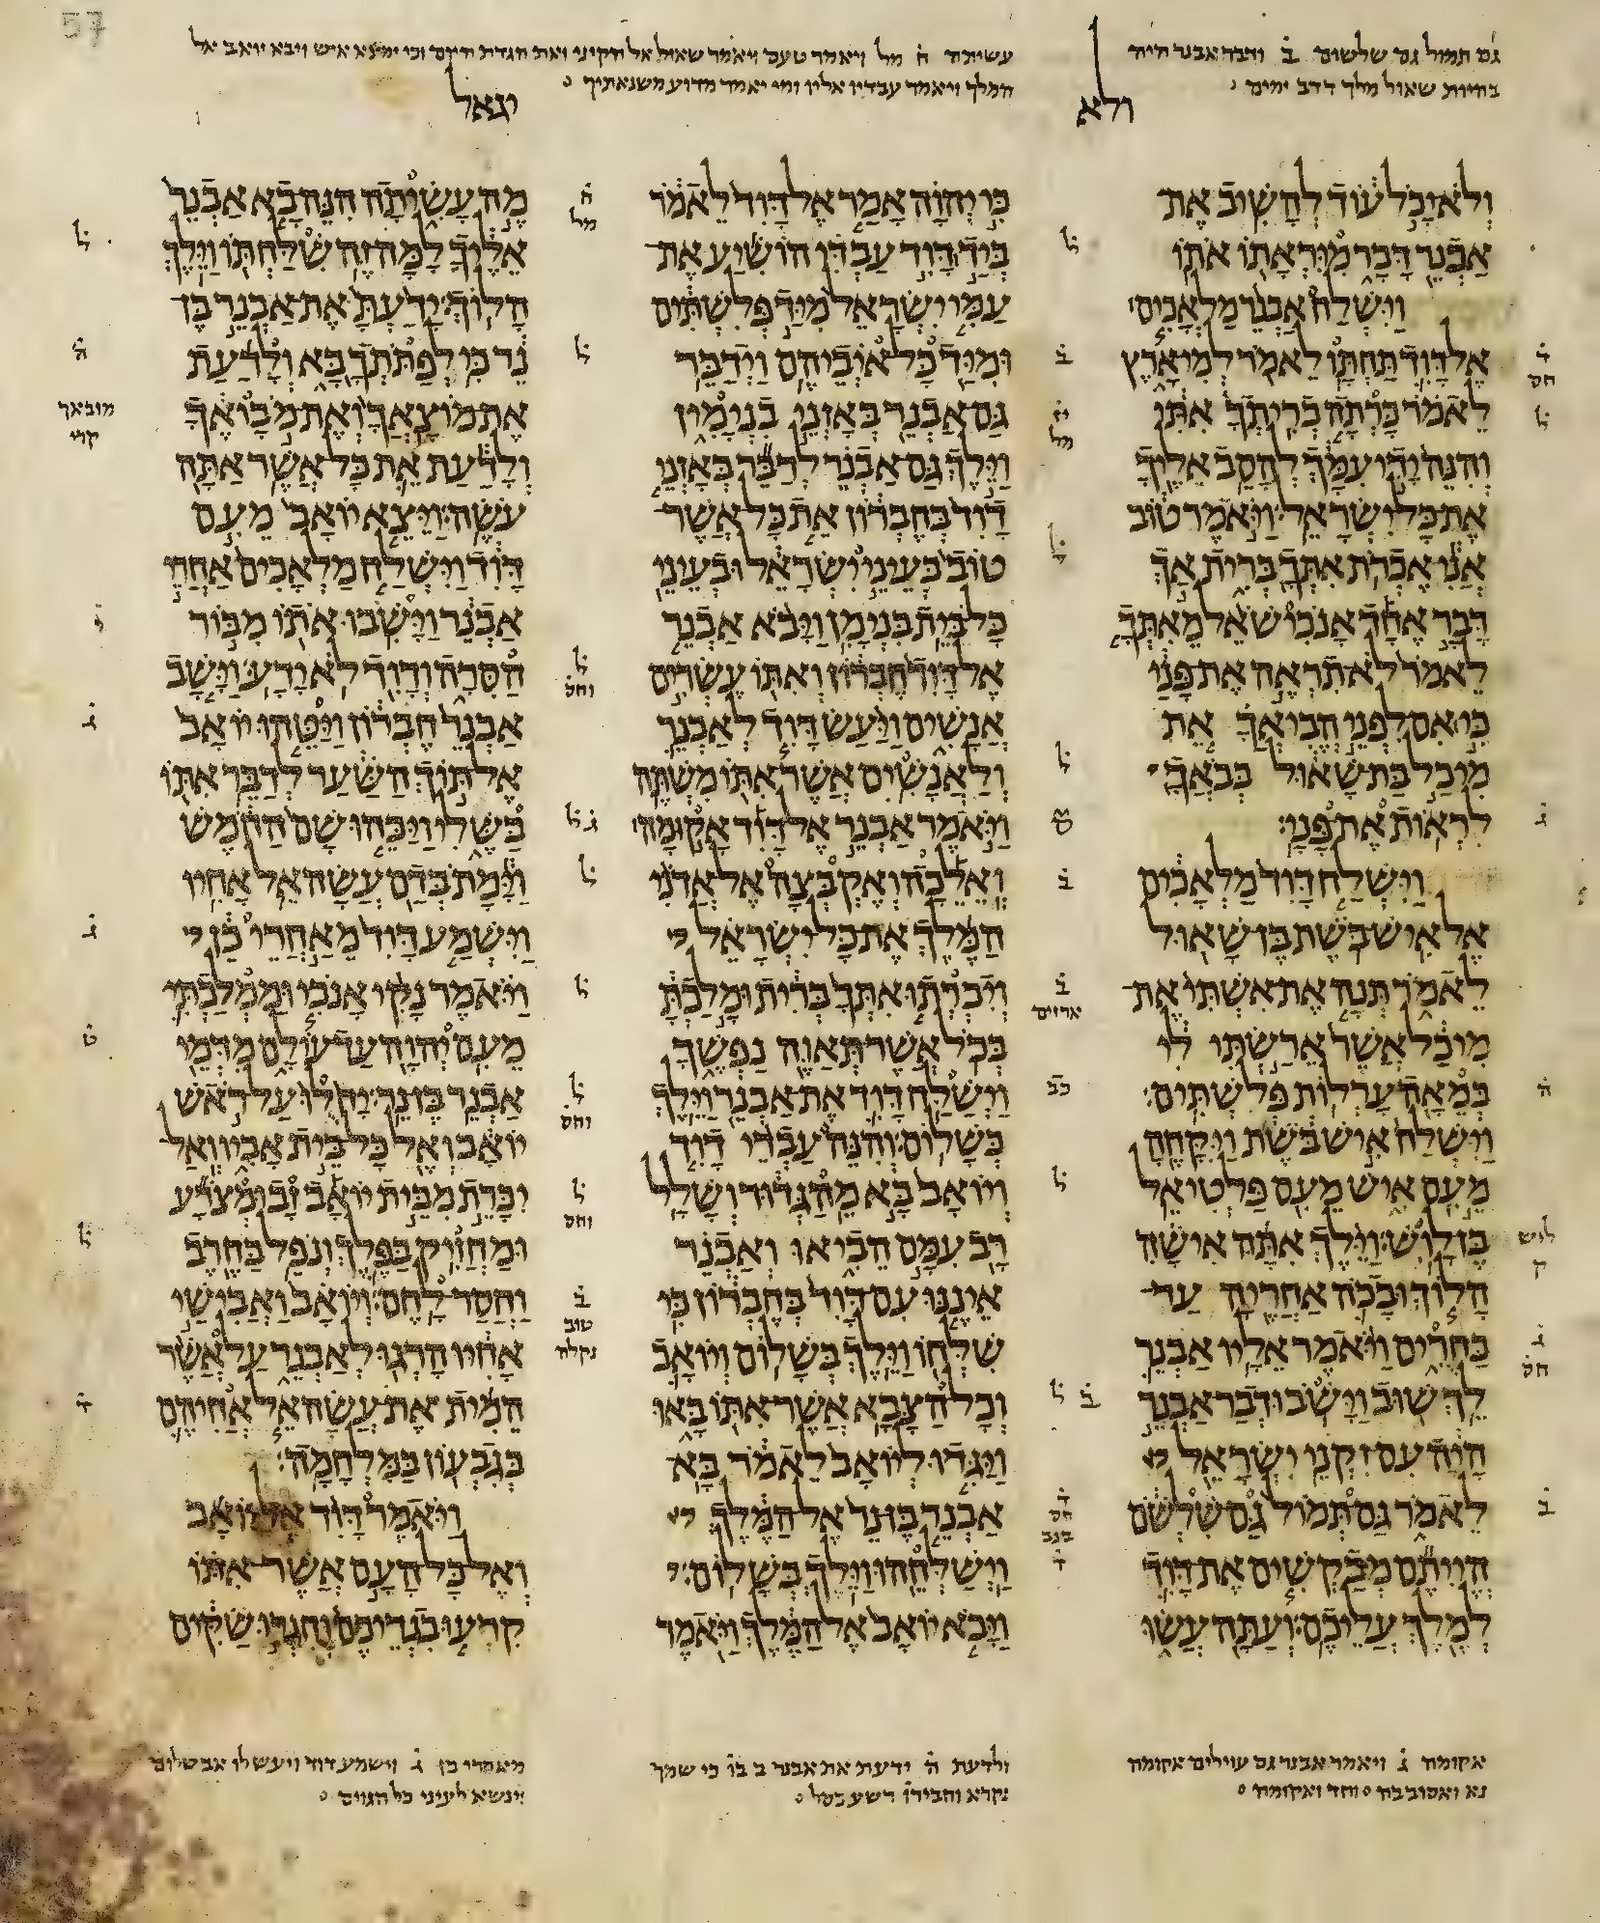 57
גם תמול גם שלשום ב̇ ודבר אבנר היה
בהיות שאול מלך דדב ימים
עשיתה ה̇ מל ויאמר טעם ויאמר שאול אל הקיני ואת הגדת היום וכי ימצא איש ויבא יואב אל
המלך ויאמר עבדיו אליו ומי יאמר מדוע משנאתיך
ולא
יגאל
ולא יכל עוד להשיב את
אבנר דבר מיראתו אתו
וישלח אבנר מלאכים
אל דוד תחתו לאמר למי ארץ
לאמר כרתה בריתך אתי
והנה ידי עמך להסב אליך
את כל ישראל ויאמר טוב
אני אכרת אתך ברית אך
דבר אחד אנכי שאל מאתך
לאמר לא תראה את פני
כי אם לפני הביאך את
מיכל בת שאול בבאך
לראות את פני
וישלח דוד מלאכים
אל איש בשת בן שאול
לאמר תנה את אשתי את
מיכל אשר ארשתי לי
במאה ערלות פלשתים
וישלח איש בשת ויקחה
מעם איש מעם פלטיאל
בן לוש וילך אתה אישה
הלוך ובכה אחריה עד
בחרים ויאמר אליו אבנר
לך שוב וישב ודבר אבנר
היה עם זקני ישראל
לאמר גם תמול גם שלשם
הייתם מבקשים את דוד
למלך עליכם ועתה עשו
כי יהוה אמר אל דוד לאמר
ביד דוד עבדי הושיע את
עמי ישראל מיד פלשתים
ומיד כל איביהם וידבר
גם אבנר באזני בנימין
וילך גם אבנר לדבר באזני
דוד בחברון את כל אשר
טוב בעיני ישראל ובעיני
כל בית בנימן ויבא אבנר
אל דוד חברון ואתו עשרים
אנשים ויעש דוד לאבנר
ולאנשים אשר אתו משתה
ויאמר אבנר אל דוד אקומה
ואלכה ואקבצה אל אדני
המלך את כל ישראל
ויכרתו אתך ברית ומלכת
בכל אשר תאוה נפשך
וישלח דוד את אבנר וילך
בשלום והנה עבדי דוד
ויואב בא מהגדוד ושלל
רב עמם הביאו ואבנר
איננו עם דוד בחברון כי
שלחו וילך בשלום ויואב
וכל הצבא אשר אתו באו
ויגדו ליואב לאמר בא
אבנר בן נר אל המלך
וישלחהו וילך בשלום
ויבא יואב אל המלך ויאמר
מה עשיתה הנה בא אבנר
אליך למה זה שלחתו וילך
הלוך ידעת את אבנר בן
נר כי לפתתך בא ולדעת
את מוצאך ואת מבואך
ולדעת את כל אשר אתה
עשה ויצא יואב מעם
דוד וישלח מלאכים אחרי
אבנר וישבו אתו מבור
הסרה ודוד לא ידע וישב
אבנר חברון ויטהו יואב
אל תוך השער לדבר אתו
בשלי ויכהו שם החמש
וימת בדם עשהאל אחיו
וישמע דוד מאחרי כן
ויאמר נקי אנכי וממלכתי
מעם יהוה עד עולם מדמי
אבנר בן נר יחלו על ראש
יואב ואל כל בית אביו ואל
יכרת מבית יואב זב ומצרע
ומחזיק בפלך ונפל בחרב
וחסר לחם ויואב ואבישי
אחיו הרגו לאבנר על אשר
המית את עשהאל אחיהם
בגבעון במלחמה
ויאמר דוד אל יואב
ואל כל העם אשר אתו
קרעו בגדיכם וחגרו שקים
מובאך
קרי
ליש
ק
אקומה ג̇ ויאמר אבנר גם עוילים אקומה
נא ואסובבה וחד ואקומה
ולדעת ה̇ ידעת את אבנר ב בו כי שמך
נקרא וחבירו רשע כסל
מאחרי כן ג̇ וישמע דוד ויעש לו אבשלום
וינשא לעיני כל הגוים